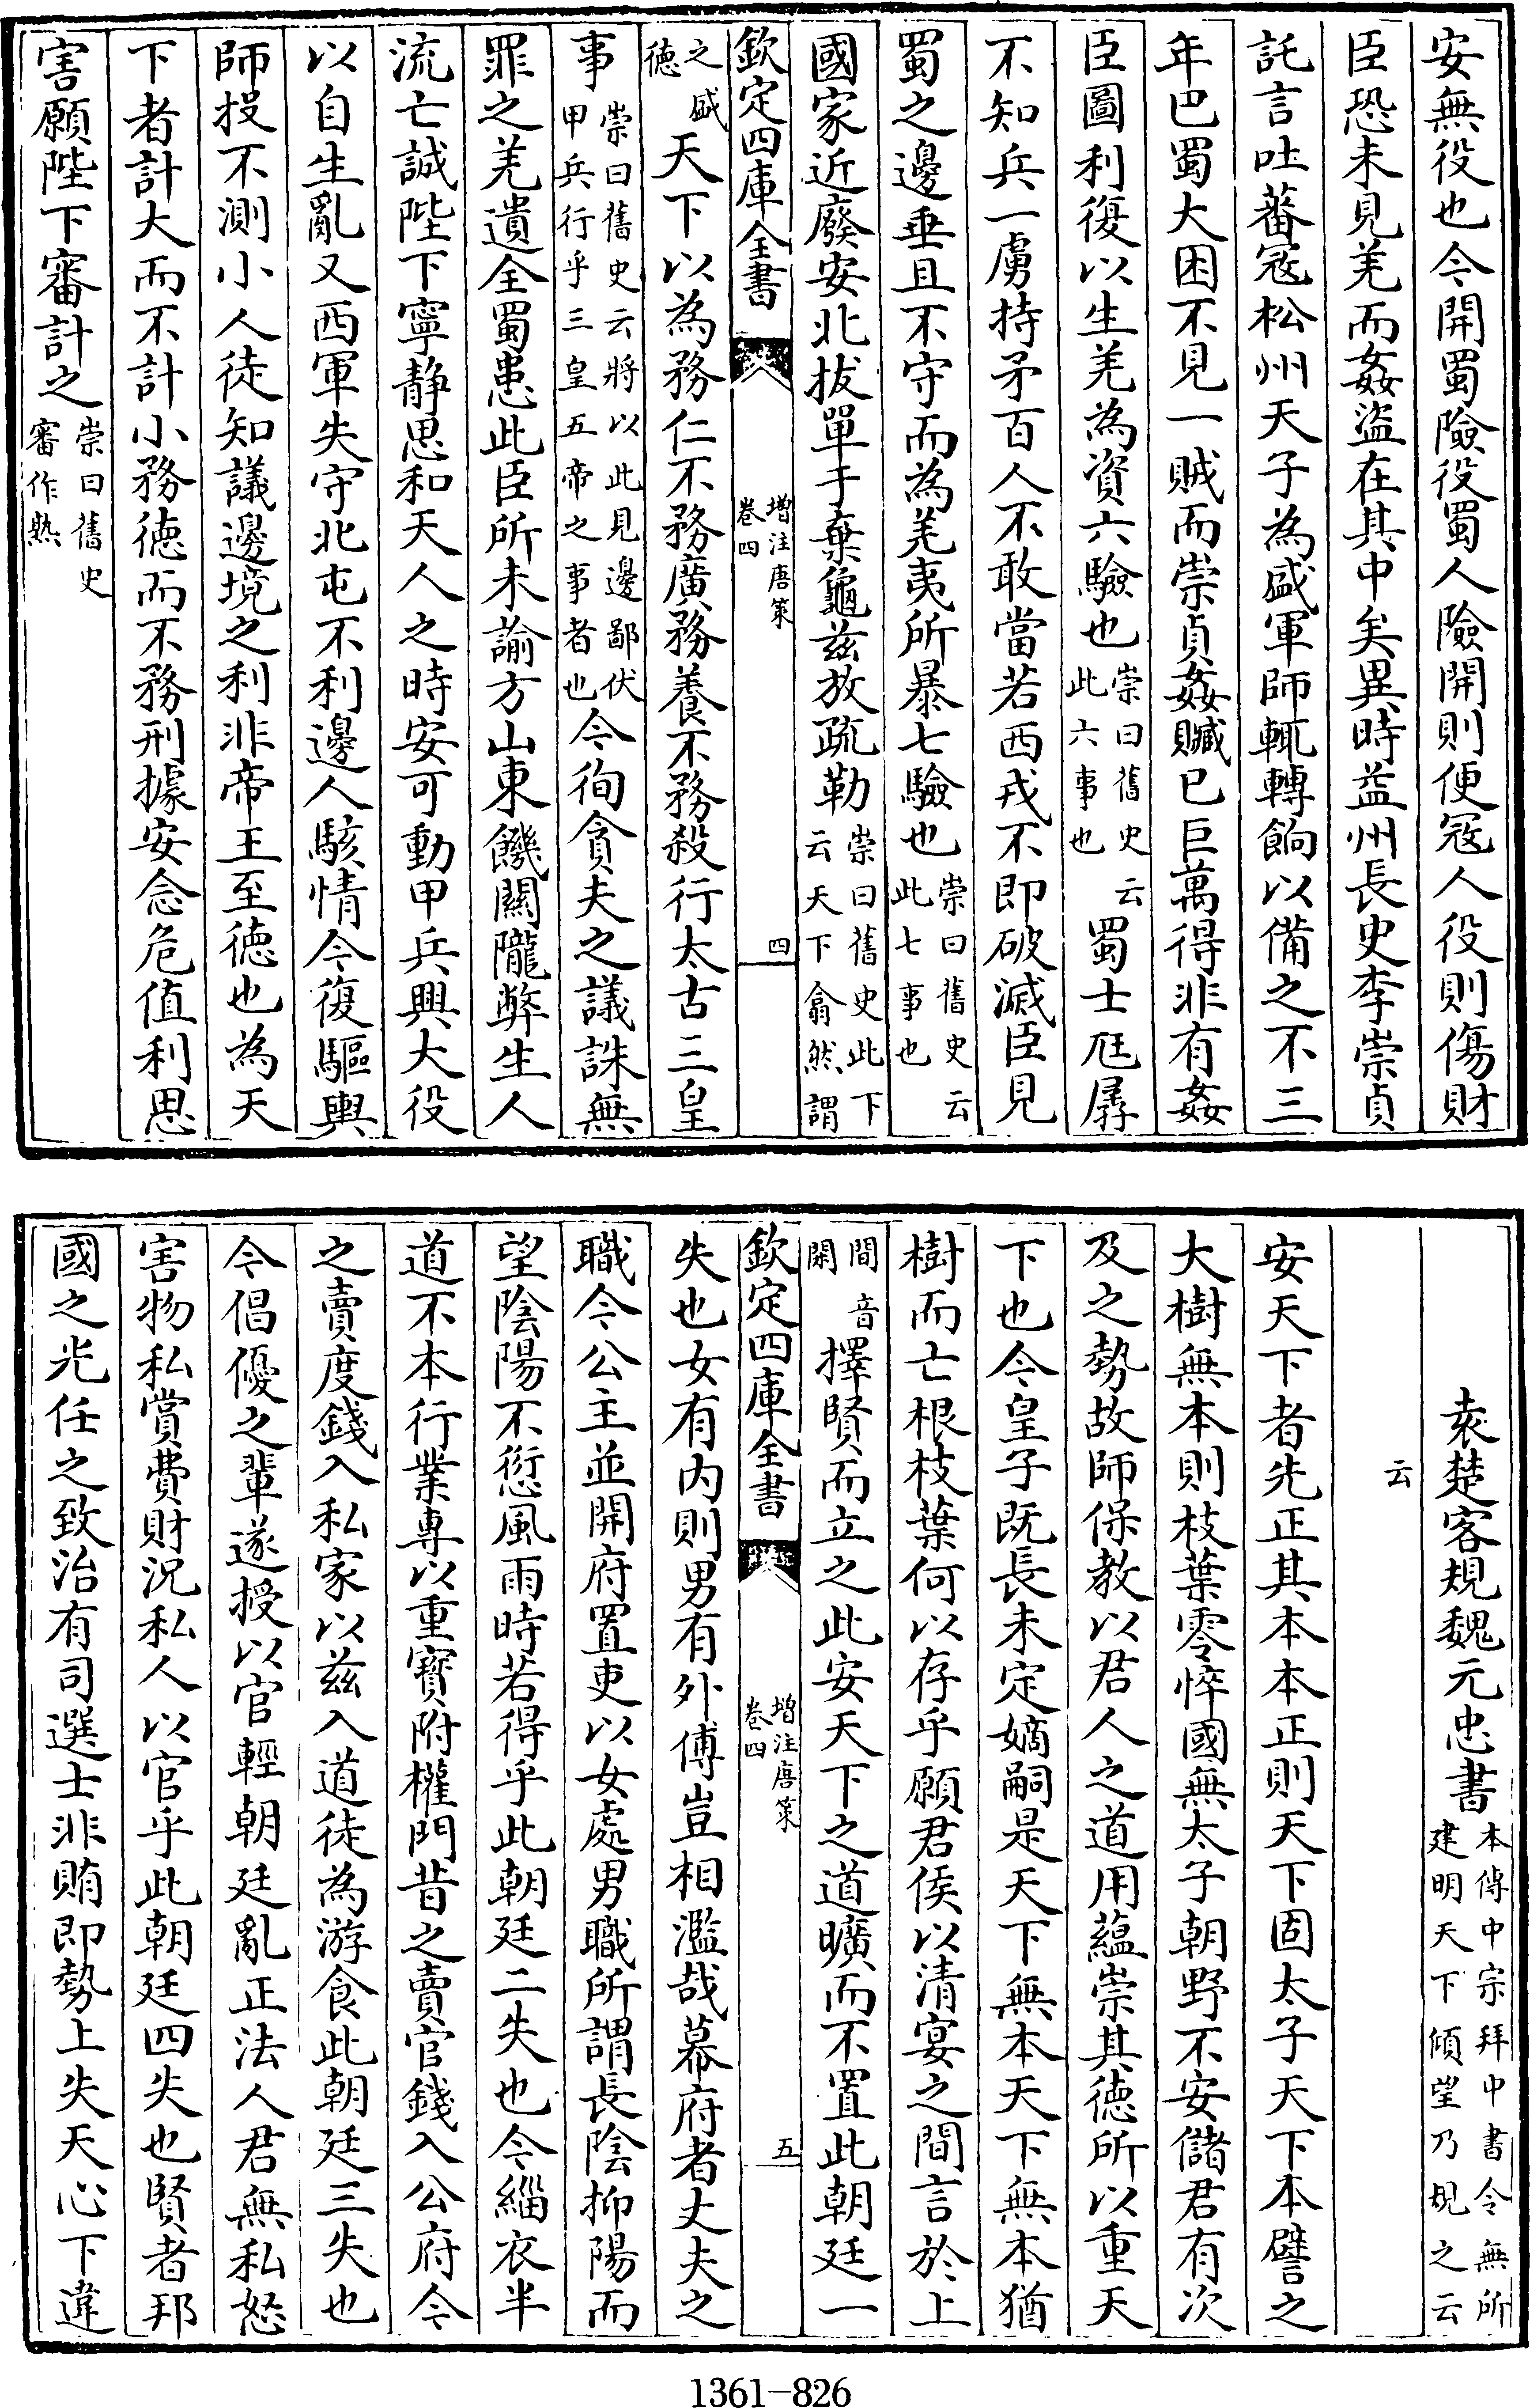 安無役也今開蜀險役蜀人險開則便冦人役則傷財
臣恐未見羌而姦盜在其中矣異時益州長史李崇貞
託言吐蕃冦松州天子為盛軍師輒轉餉以備之不三
年巴蜀大困不見一賊而崇貞姦贓已巨萬得非有姦
臣圖利復以生羌為資六驗也崇曰舊史云此六事也蜀士尫孱
不知兵一虜持矛百人不敢當若西戎不即破滅臣見
蜀之邊垂且不守而為羌夷所暴七驗也崇曰舊史云此七事也
國家近廢安北拔單于棄龜兹放疏勒崇曰舊史此下云天下翕然謂
欽定四庫全書
增注唐策
卷四
四
之盛德天下以為務仁不務廣務養不務殺行太古三皇
事崇曰舊史云將以此見邊鄙伏甲兵行乎三皇五帝之事者也今徇貪夫之議誅無
罪之羌遺全蜀患此臣所未諭方山東饑關隴弊生人
流亡誠陛下寧静思和天人之時安可動甲兵興大役
以自生亂又西軍失守北屯不利邊人駭情今復驅輿
師投不測小人徒知議邊境之利非帝王至徳也為天
下者計大而不計小務徳而不務刑據安念危值利思
害願陛下審計之崇曰舊史審作熟
袁楚客規魏元忠書本傳中宗拜中書令無所建明天下傾望乃規之云
云
安天下者先正其本本正則天下固太子天下本譬之
大樹無本則枝葉零悴國無太子朝野不安儲君有次
及之勢故師保教以君人之道用蘊崇其徳所以重天
下也今皇子既長未定嫡嗣是天下無本天下無本猶
樹而亡根枝葉何以存乎願君侯以清宴之間言於上
間音閑擇賢而立之此安天下之道曠而不置此朝廷一
欽定四庫全書
增注唐策
卷四
五
失也女有内則男有外傅豈相濫哉幕府者丈夫之
職今公主並開府置吏以女處男職所謂長陰抑陽而
望陰陽不愆風雨時若得乎此朝廷二失也今緇衣半
道不本行業專以重寳附權門昔之賣官錢入公府今
之賣度錢入私家以兹入道徒為游食此朝廷三失也
今倡優之輩遂授以官輕朝廷亂正法人君無私怒
害物私賞費財況私人以官乎此朝廷四失也賢者邦
國之光任之致治有司選士非賄即勢上失天心下違
1361-826